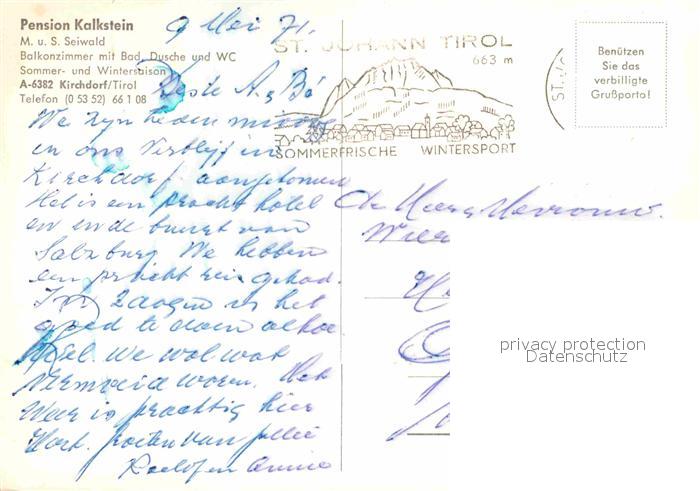 Pension Kalkstein
M. u. S. Seiwald
Balkonzimmer mit Bad, Dusche und WC
Sommer- und Wintersaison
A-6382 Kirchdorf/Tirol
Telefon (0 53 52) 66 1 08
9 Mei 71.
ST. JOHANN TIROL
663 m
SOMMERFRISCHE WINTERSPORT
ST.
Benützen
Sie das
verbilligte
Grußporto!
Beste A. Bé
We zijn heden
in ons Verblijf in
Kirchdorf aangekomen
Het is een pracht hotel
en in de buurt van
Salzburg. We hebben
een pracht reis gehad.
In 2 dagen is het
goed te doen
we wel wat
vermoeid waren. Het
Weer is prachtig hier
Hart. groeten van jullie
Roelof en Annie
De Heer & Mevrouw
privacy protection
Datenschutz